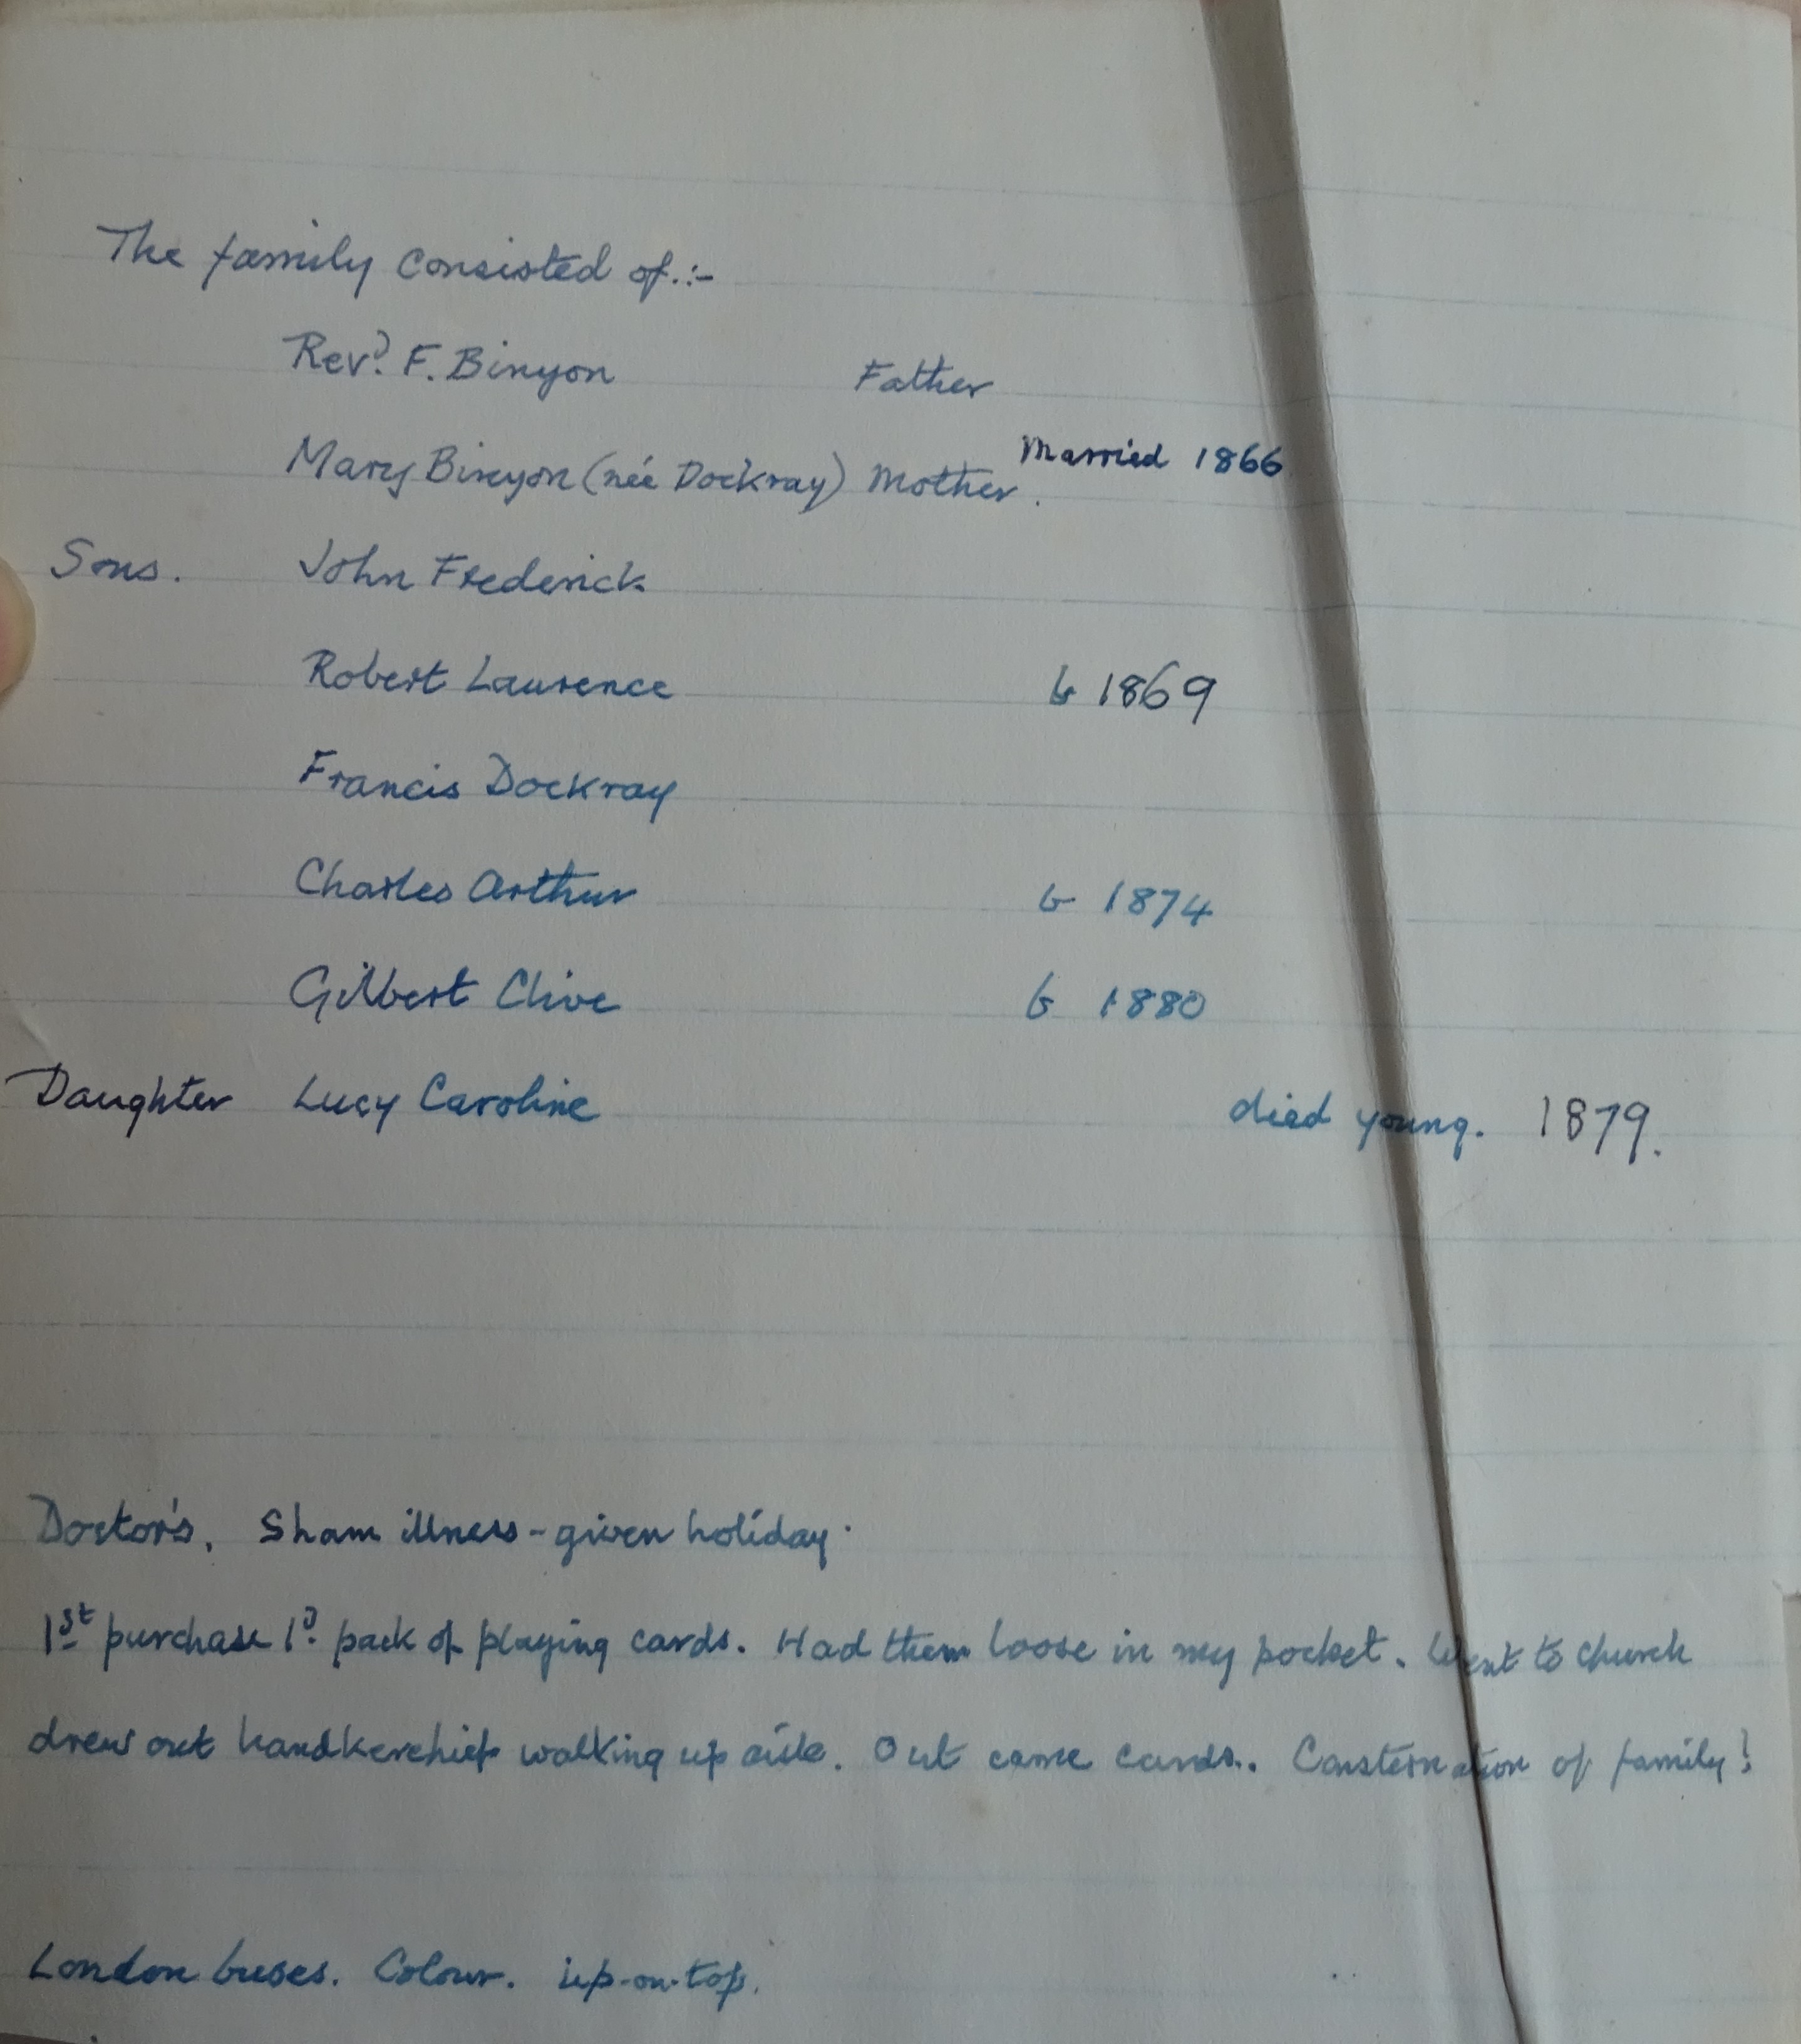 The family consisted of.:-
Rev.d F. Binyon Father
Mary Binyon (née Dockray) Mother. Married 1866
Sons. John Frederick
Robert Laurence b 1869
Francis Dockray
Charles Arthur b 1874
Gilbert Clive b 1880
Daughter Lucy Caroline died young. 1879.
Doctor's. Sham illness - given holiday.
1st purchase 1d. pack of playing cards. Had them loose in my pocket. Went to church
drew out handkerchief walking up aisle. Out came cards.. Consternation of family!
London buses. Colour. up-on-top.